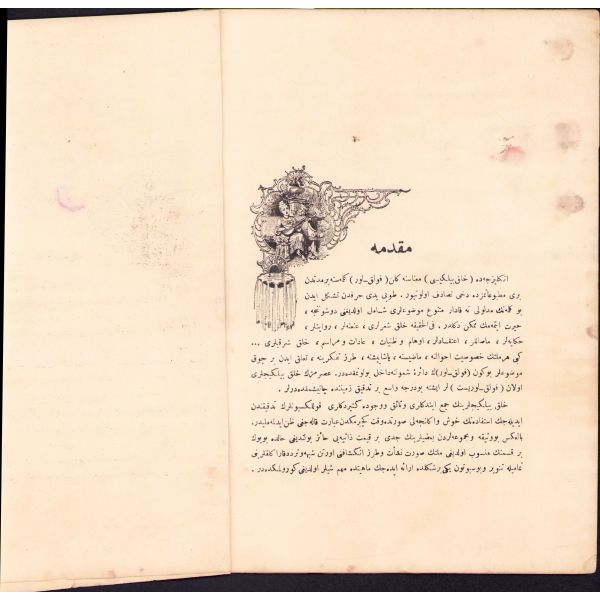 مقدمه
انكليزجه‌ده ( خلق بيلكيسى ) معناسنه كلن ( فولق ـ لور ) كلمه‌سنه بر مدتدن
برى مطبوعاتمزده دخى تصادف اولونيور . طوپى يدى حرفدن تشكل ايدن
بو كلمه‌نك مدلولى نه قادار متنوع موضوعلرى شامل اولديغنى دوشوننجه ،
حيرت ايتمه‌مك ممكن دكلدر . فى الحقيقه خلق شعرلرى ، عنعنه‌لر ، روايتلر ،
حكايه‌لر ، ماصاللر ، اعتقادلر ، اوهام و ظنيات ، عادات و مراسم ، خلق شرقيلرى ...
كبى هر ملتك خصوصيت احوالنه ، ماضيسنه ، ياشايشنه ، طرز تفكرينه تعلق ايدن بر چوق
موضوعلر بوكون ( فولق ـ لور ) ك دائرهٔ شمولنه داخل بولونمقده‌در . عصرمزك خلق بيلكيجيلرى
اولان ( فولق ـ لوريست ) لر ايشته بو درجه واسع بر تدقيق زميننده چاليشمقده‌درلر .
خلق بيلكيجيلرينك جمع ايتدكلرى وثائق و وجوده كتيردكلرى قوللكسيونلرك تدقيقندن
ايديله‌جك استفاده‌نك خوش و اكلنجه‌لى صورتده وقت كچيرمكدن عبارت قاله‌جغنى ظن ايدنه‌مليدر.
بالعكس بو وثيقه و مجموعه‌لردن بعضيلرينك جدى بر قيمت ذاتيه‌يى حائز بولنديغى حالده بويوك
بر قسمنك منسوب اولديغى ملتك صورت نشأت و طرز انكشافنى اورتن
تماميله تنوير و بوسبوتون يكى بر شكلده ارائه ايده‌جك ماهيتده مهم شيلر اولديغى كورولمكده‌در .